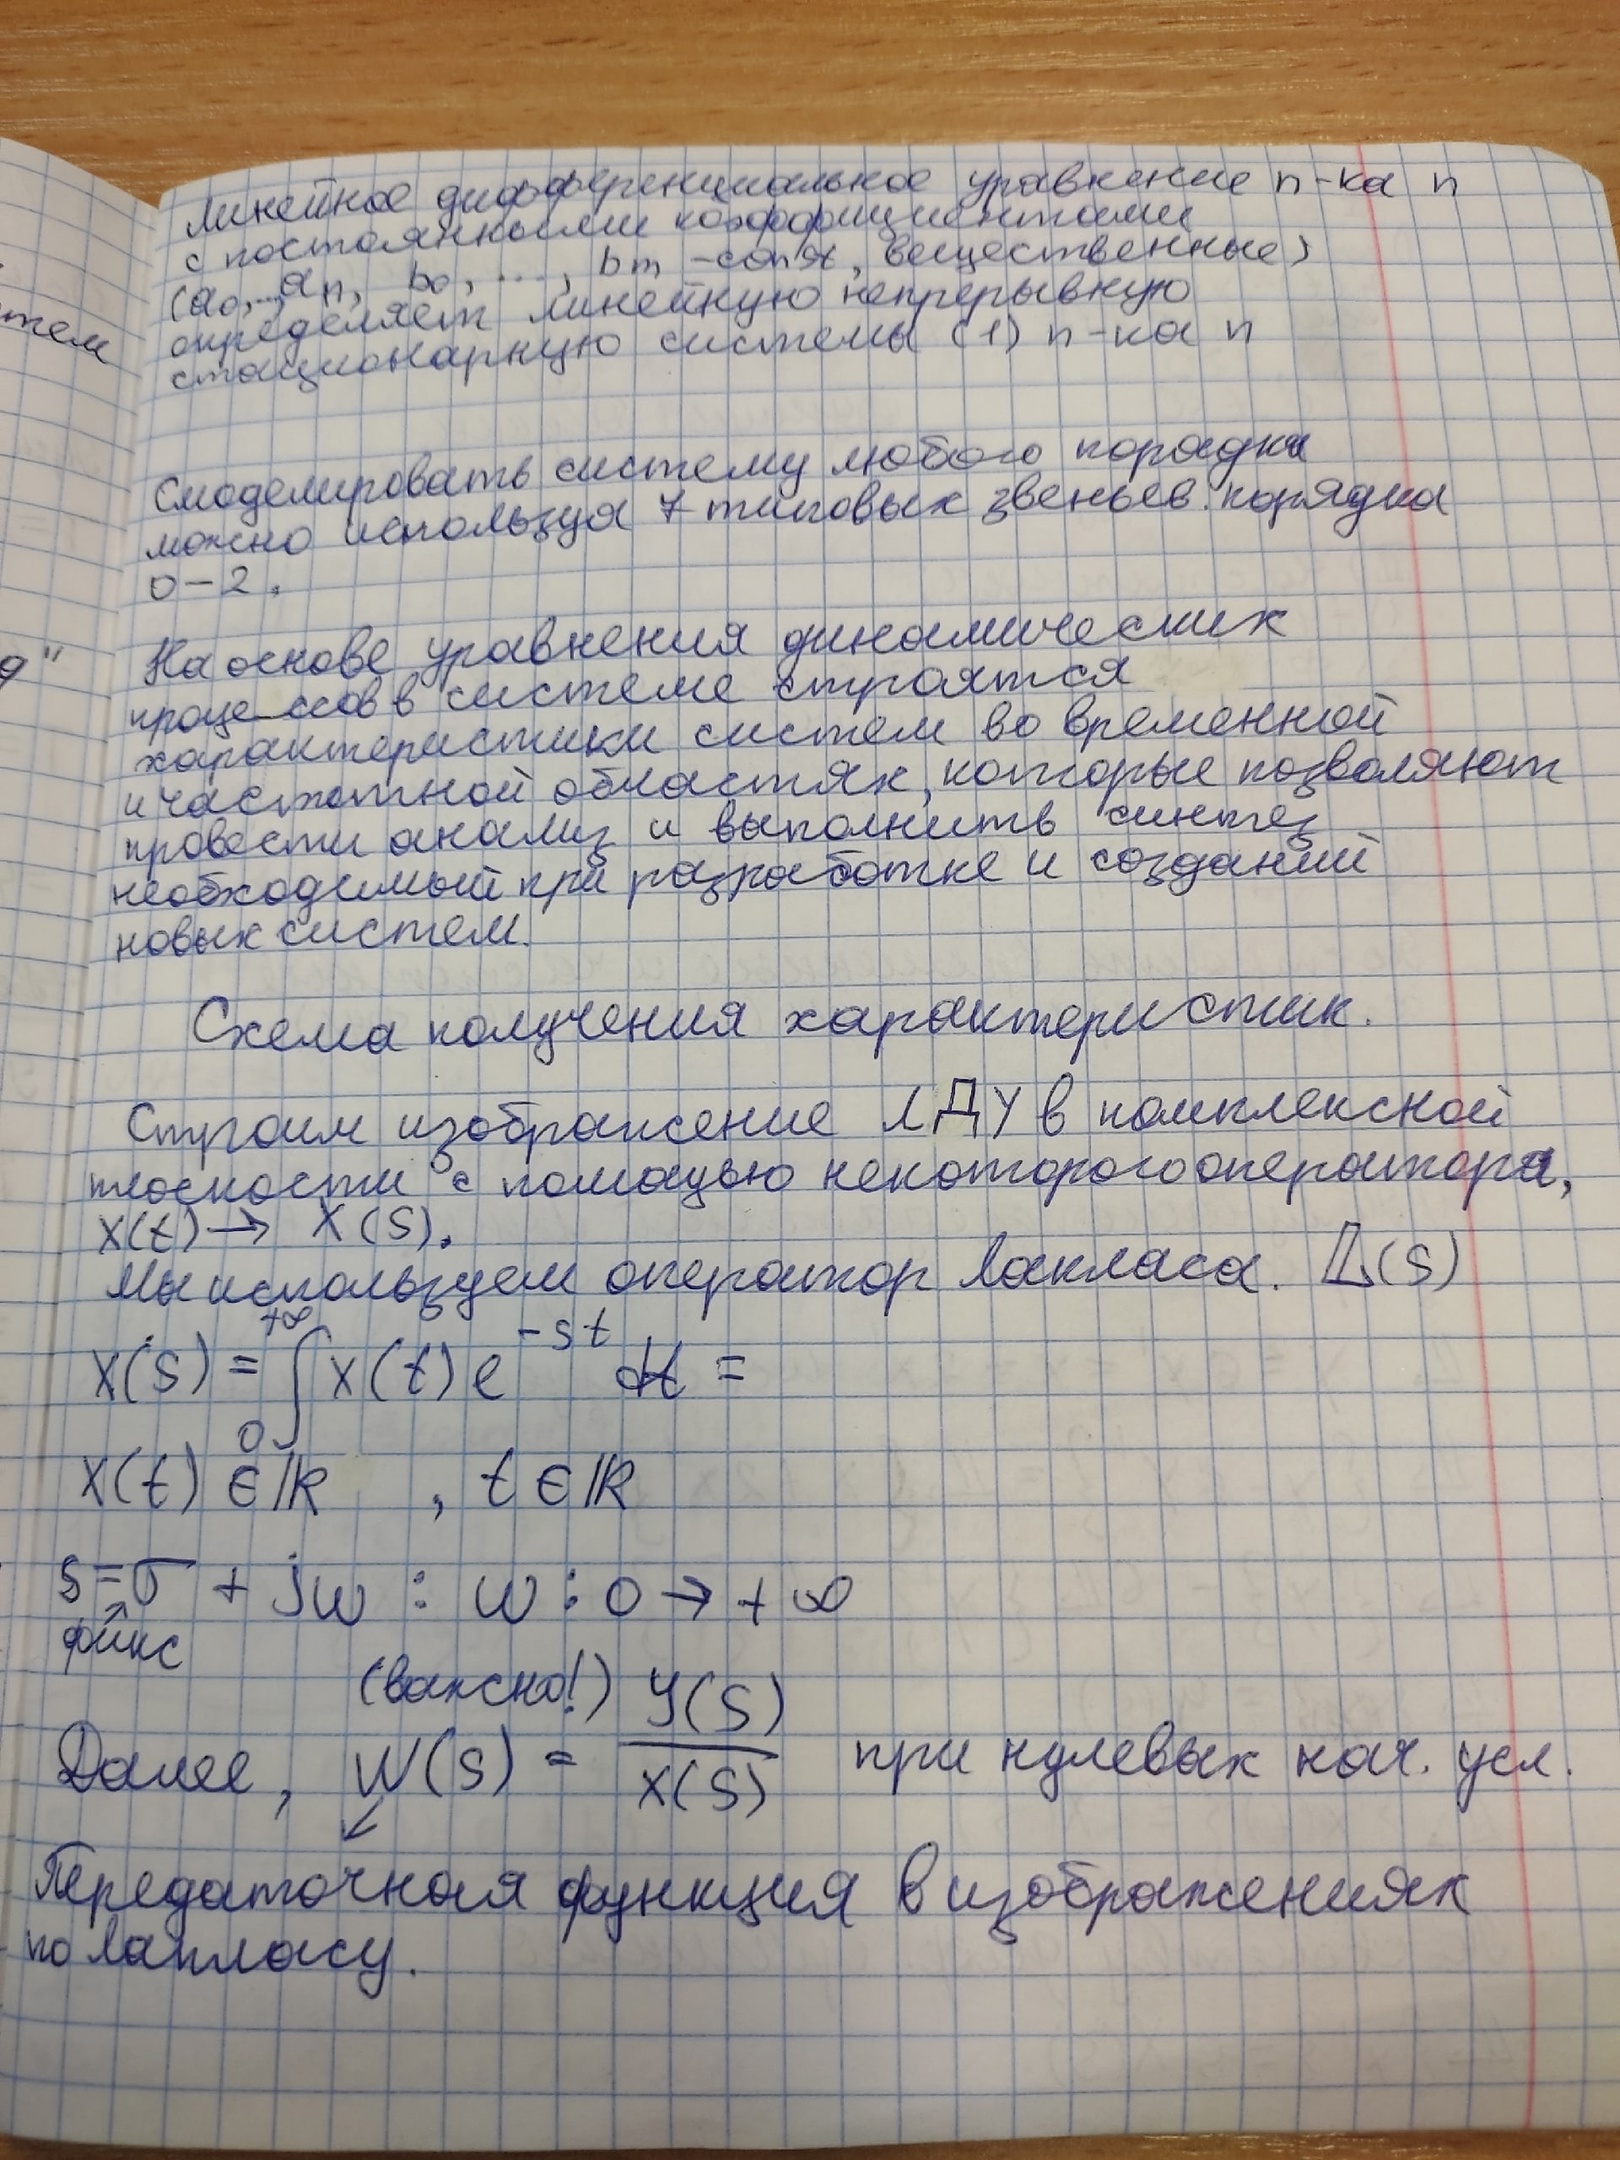 Линейное дифференциальное уравнение n-ка n
с постоянными коэффициентами
(a₀,..,aₙ, b₀, ..., bₘ - const, вещественные)
определяет линейную непрерывную
стационарную системы (1) n-ка n
Смоделировать систему любого порядка
можно используя 7 типовых звеньев порядка
0-2.
На основе уравнения динамических
процессов в системе строятся
характеристики систем во временной
и частотной областях, которые позволяют
провести анализ и выполнить синтез
необходимый при разработке и созданий
новых систем.
Схема получения характеристик.
Строим изображение ЛДУ в комплексной
плоскости с помощью некоторого оператора,
x(t) → X(s).
Мы используем оператор Лапласа. 𝕃(s)
X(s) = ∫₀^{+∞} x(t) e^{-st} dt =
x(t) ∈ ℝ , t ∈ ℝ
s = σ + jω : ω : 0 → + ∞
фикс
(важно!)
Далее, W(s) = Y(s)/X(s) при нулевых нач. усл.
Передаточная функция в изображениях
по Лапласу.
тем
д"